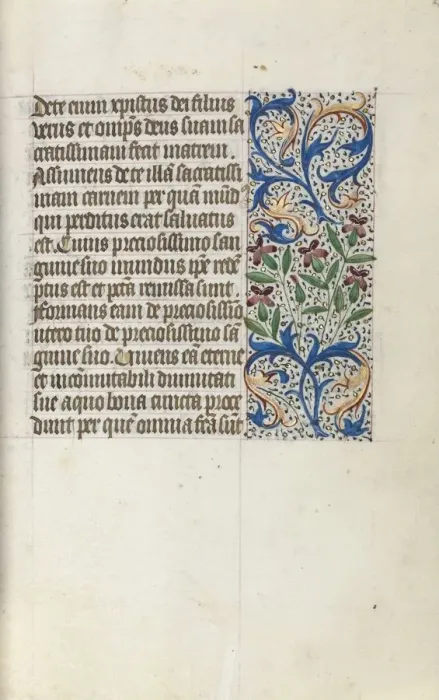 Dete enim xpistus dei filius
verus et omips deus suam sa
cratissimam fecit matrem.
Assumens de te illā sacratissi
mam carnem per quā mūd
qui perditus erat saluatus
est. Cuius preciosissimo san
guine suo mundus ipe redē
ptus est et pctā remissa sunt.
fformans eam de preciosissīo
utero tuo de preciosissimo sā
guine suo. Uniens eā eterne
et incōmutabili diuinitati
sue a quo bona cuncta proce
dunt per quē omnia fcā sūt